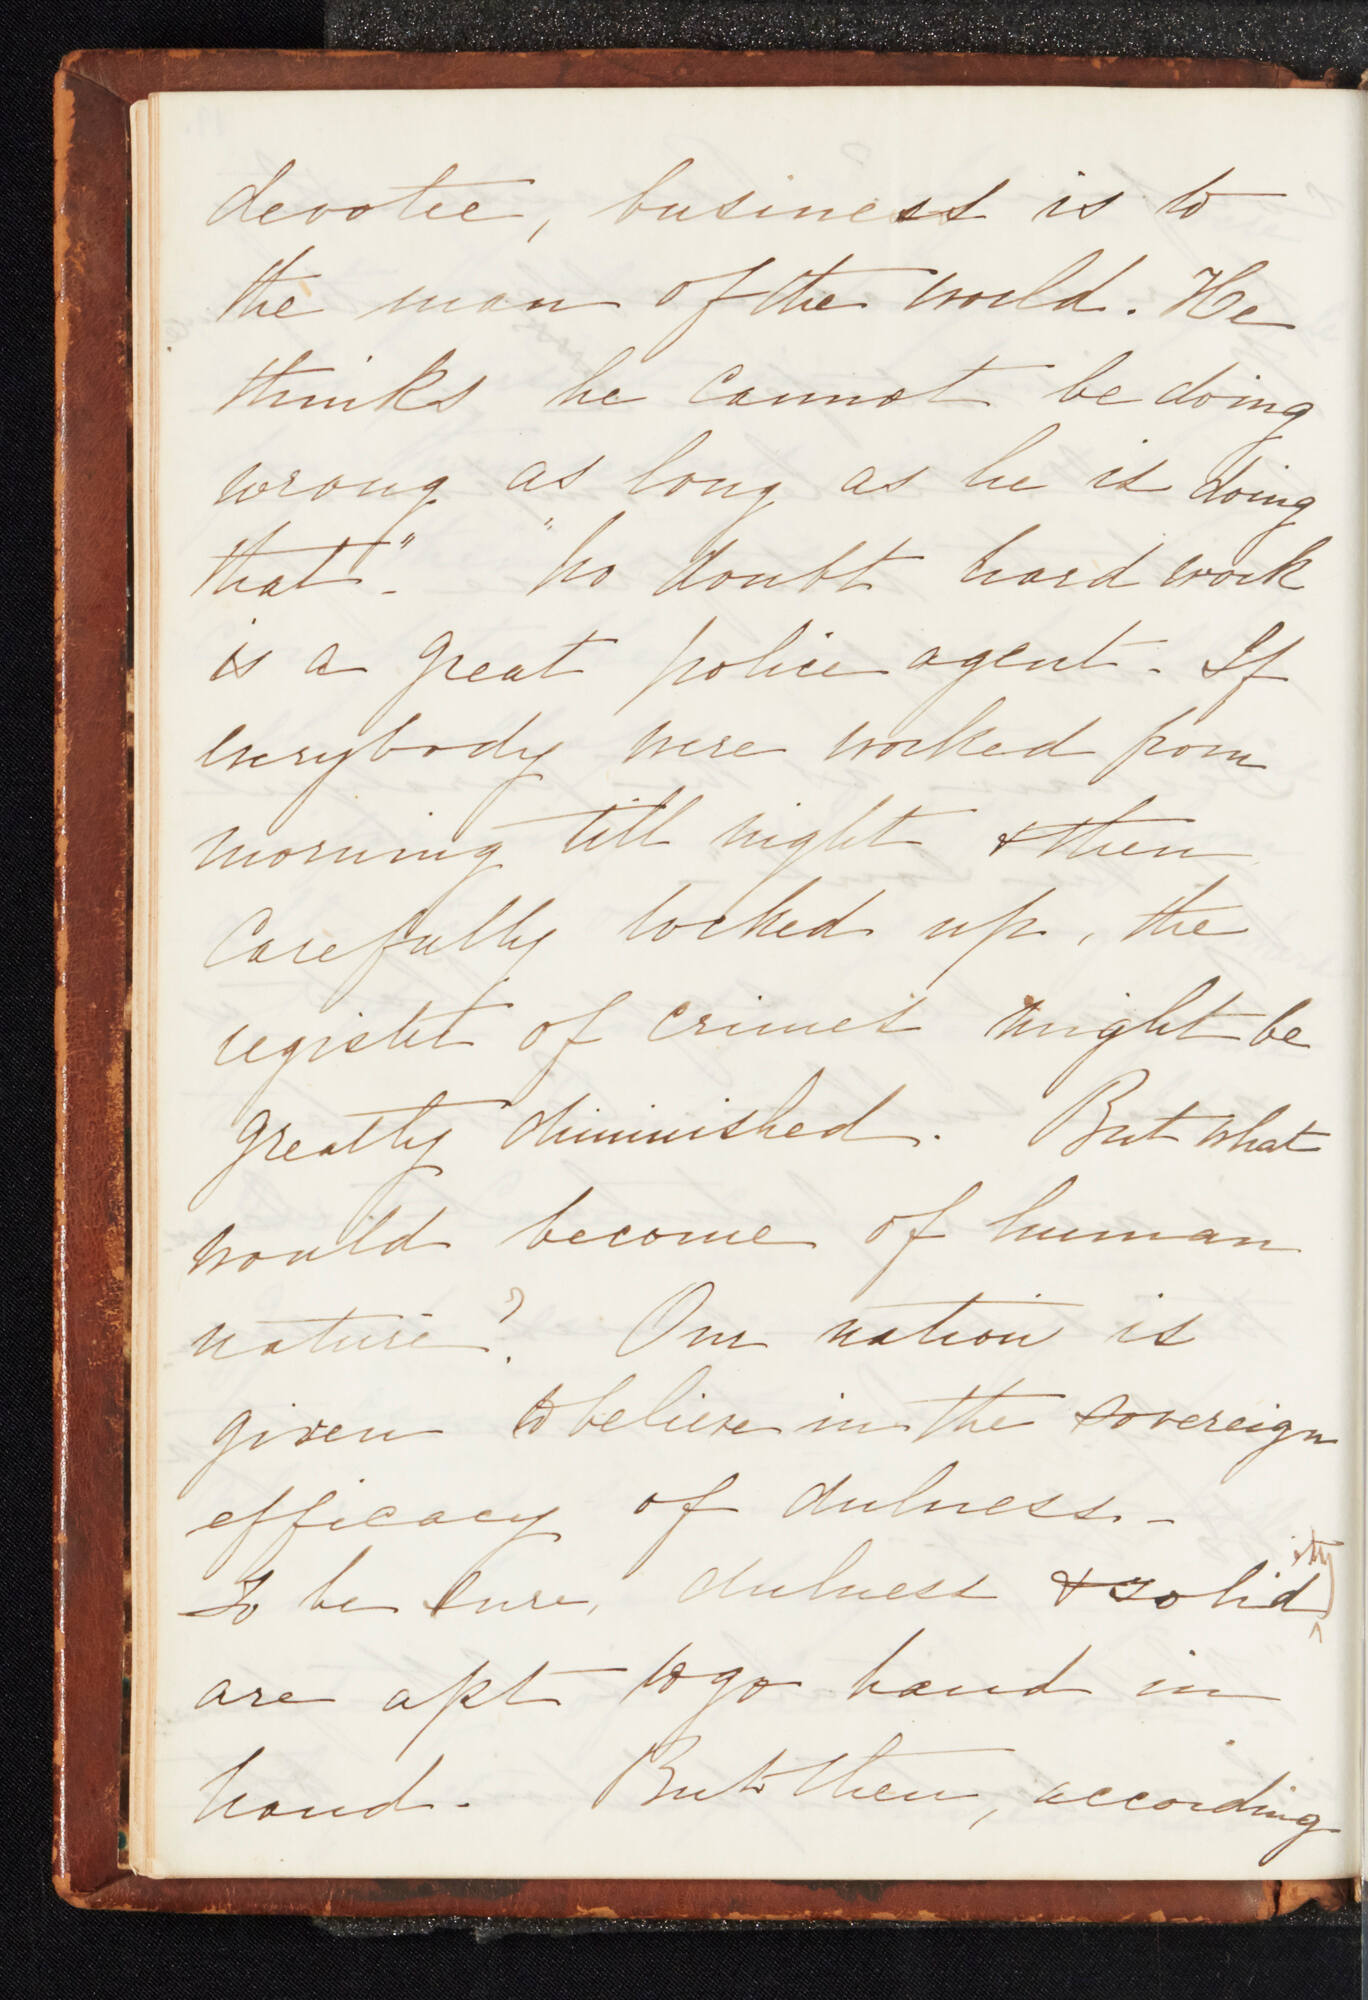 devotee, business is to
the man of the world. He
thinks he cannot be doing
wrong as long as he is doing
that". "No doubt hard work
is a great police agent. If
everybody were worked from
morning till night & then
carefully locked up, the
register of crimes might be
greatly diminished. But what
would become of human
nature? Our nation is
given to believe in the sovereign
efficacy of dulness.
To be sure, dulness & solidity
are apt to go hand in
hand. But then, according